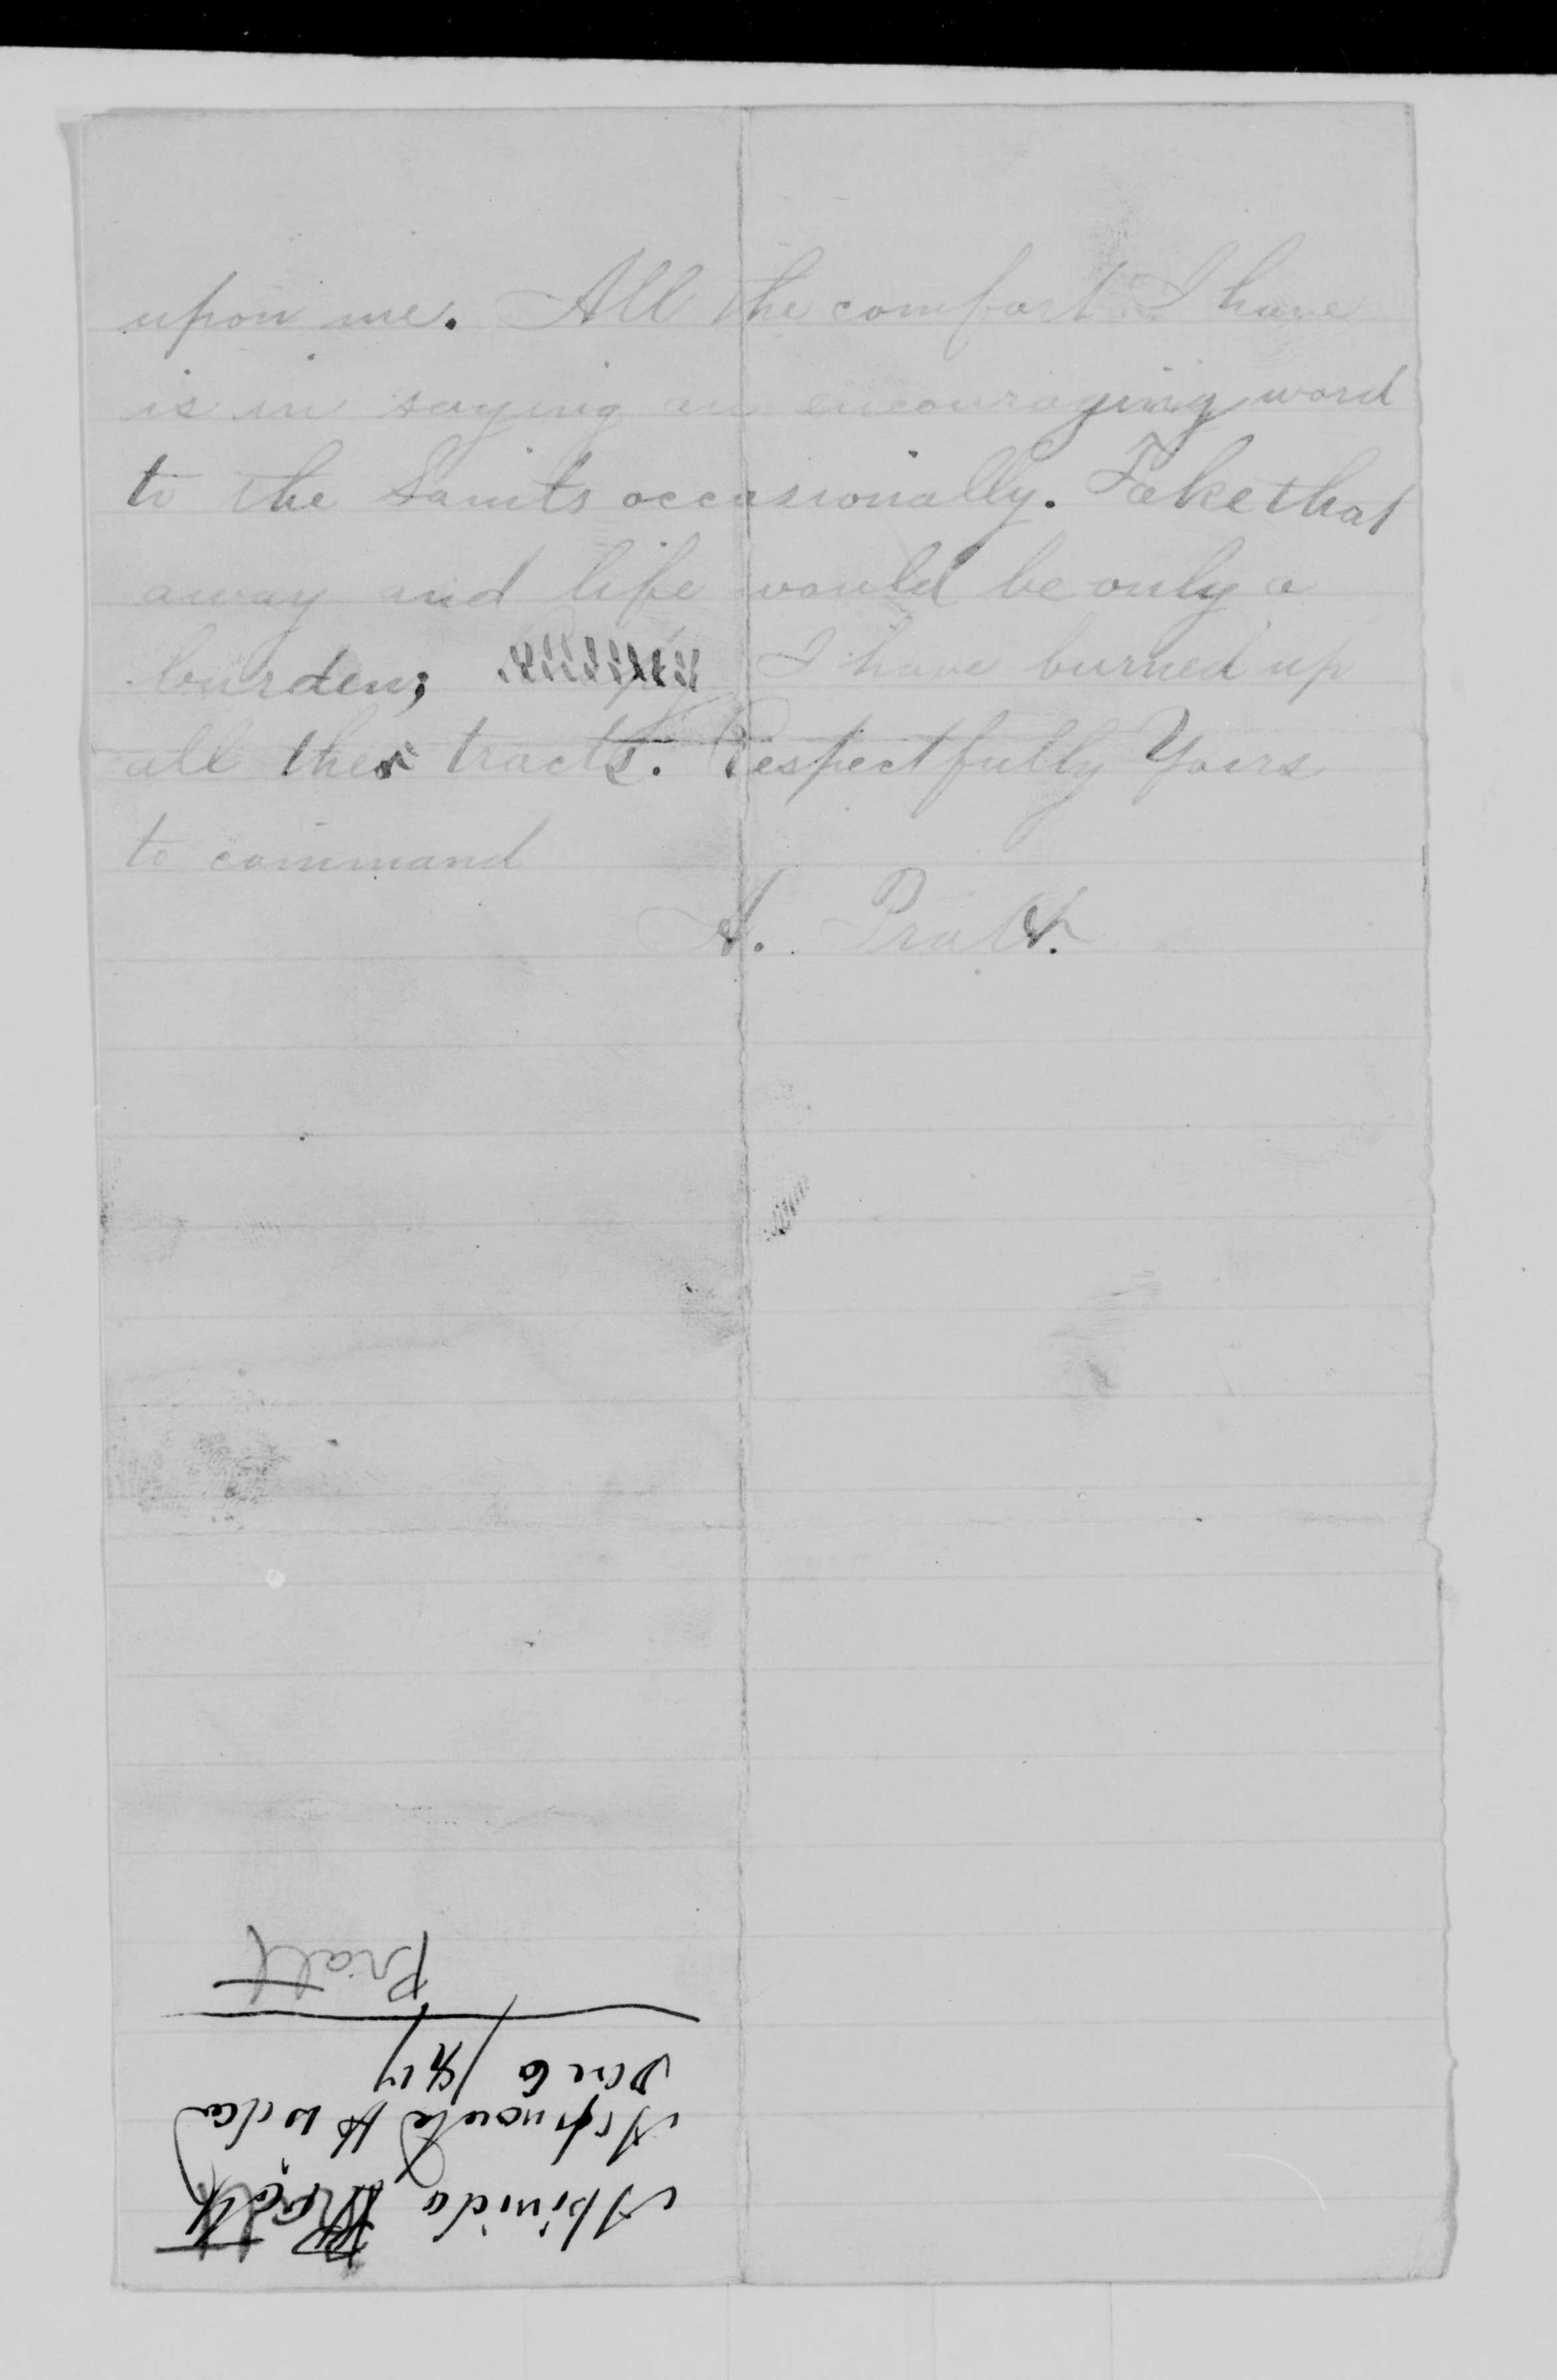 upon me. All the comfort I have
is in saying an encouraging word
to the Saints occasionally. Take that
away and life would be only a
burden; I have burned up
all the tracts. Respectfully Yours
to command
A. Pratt.
Pratt
Abinida Pratt